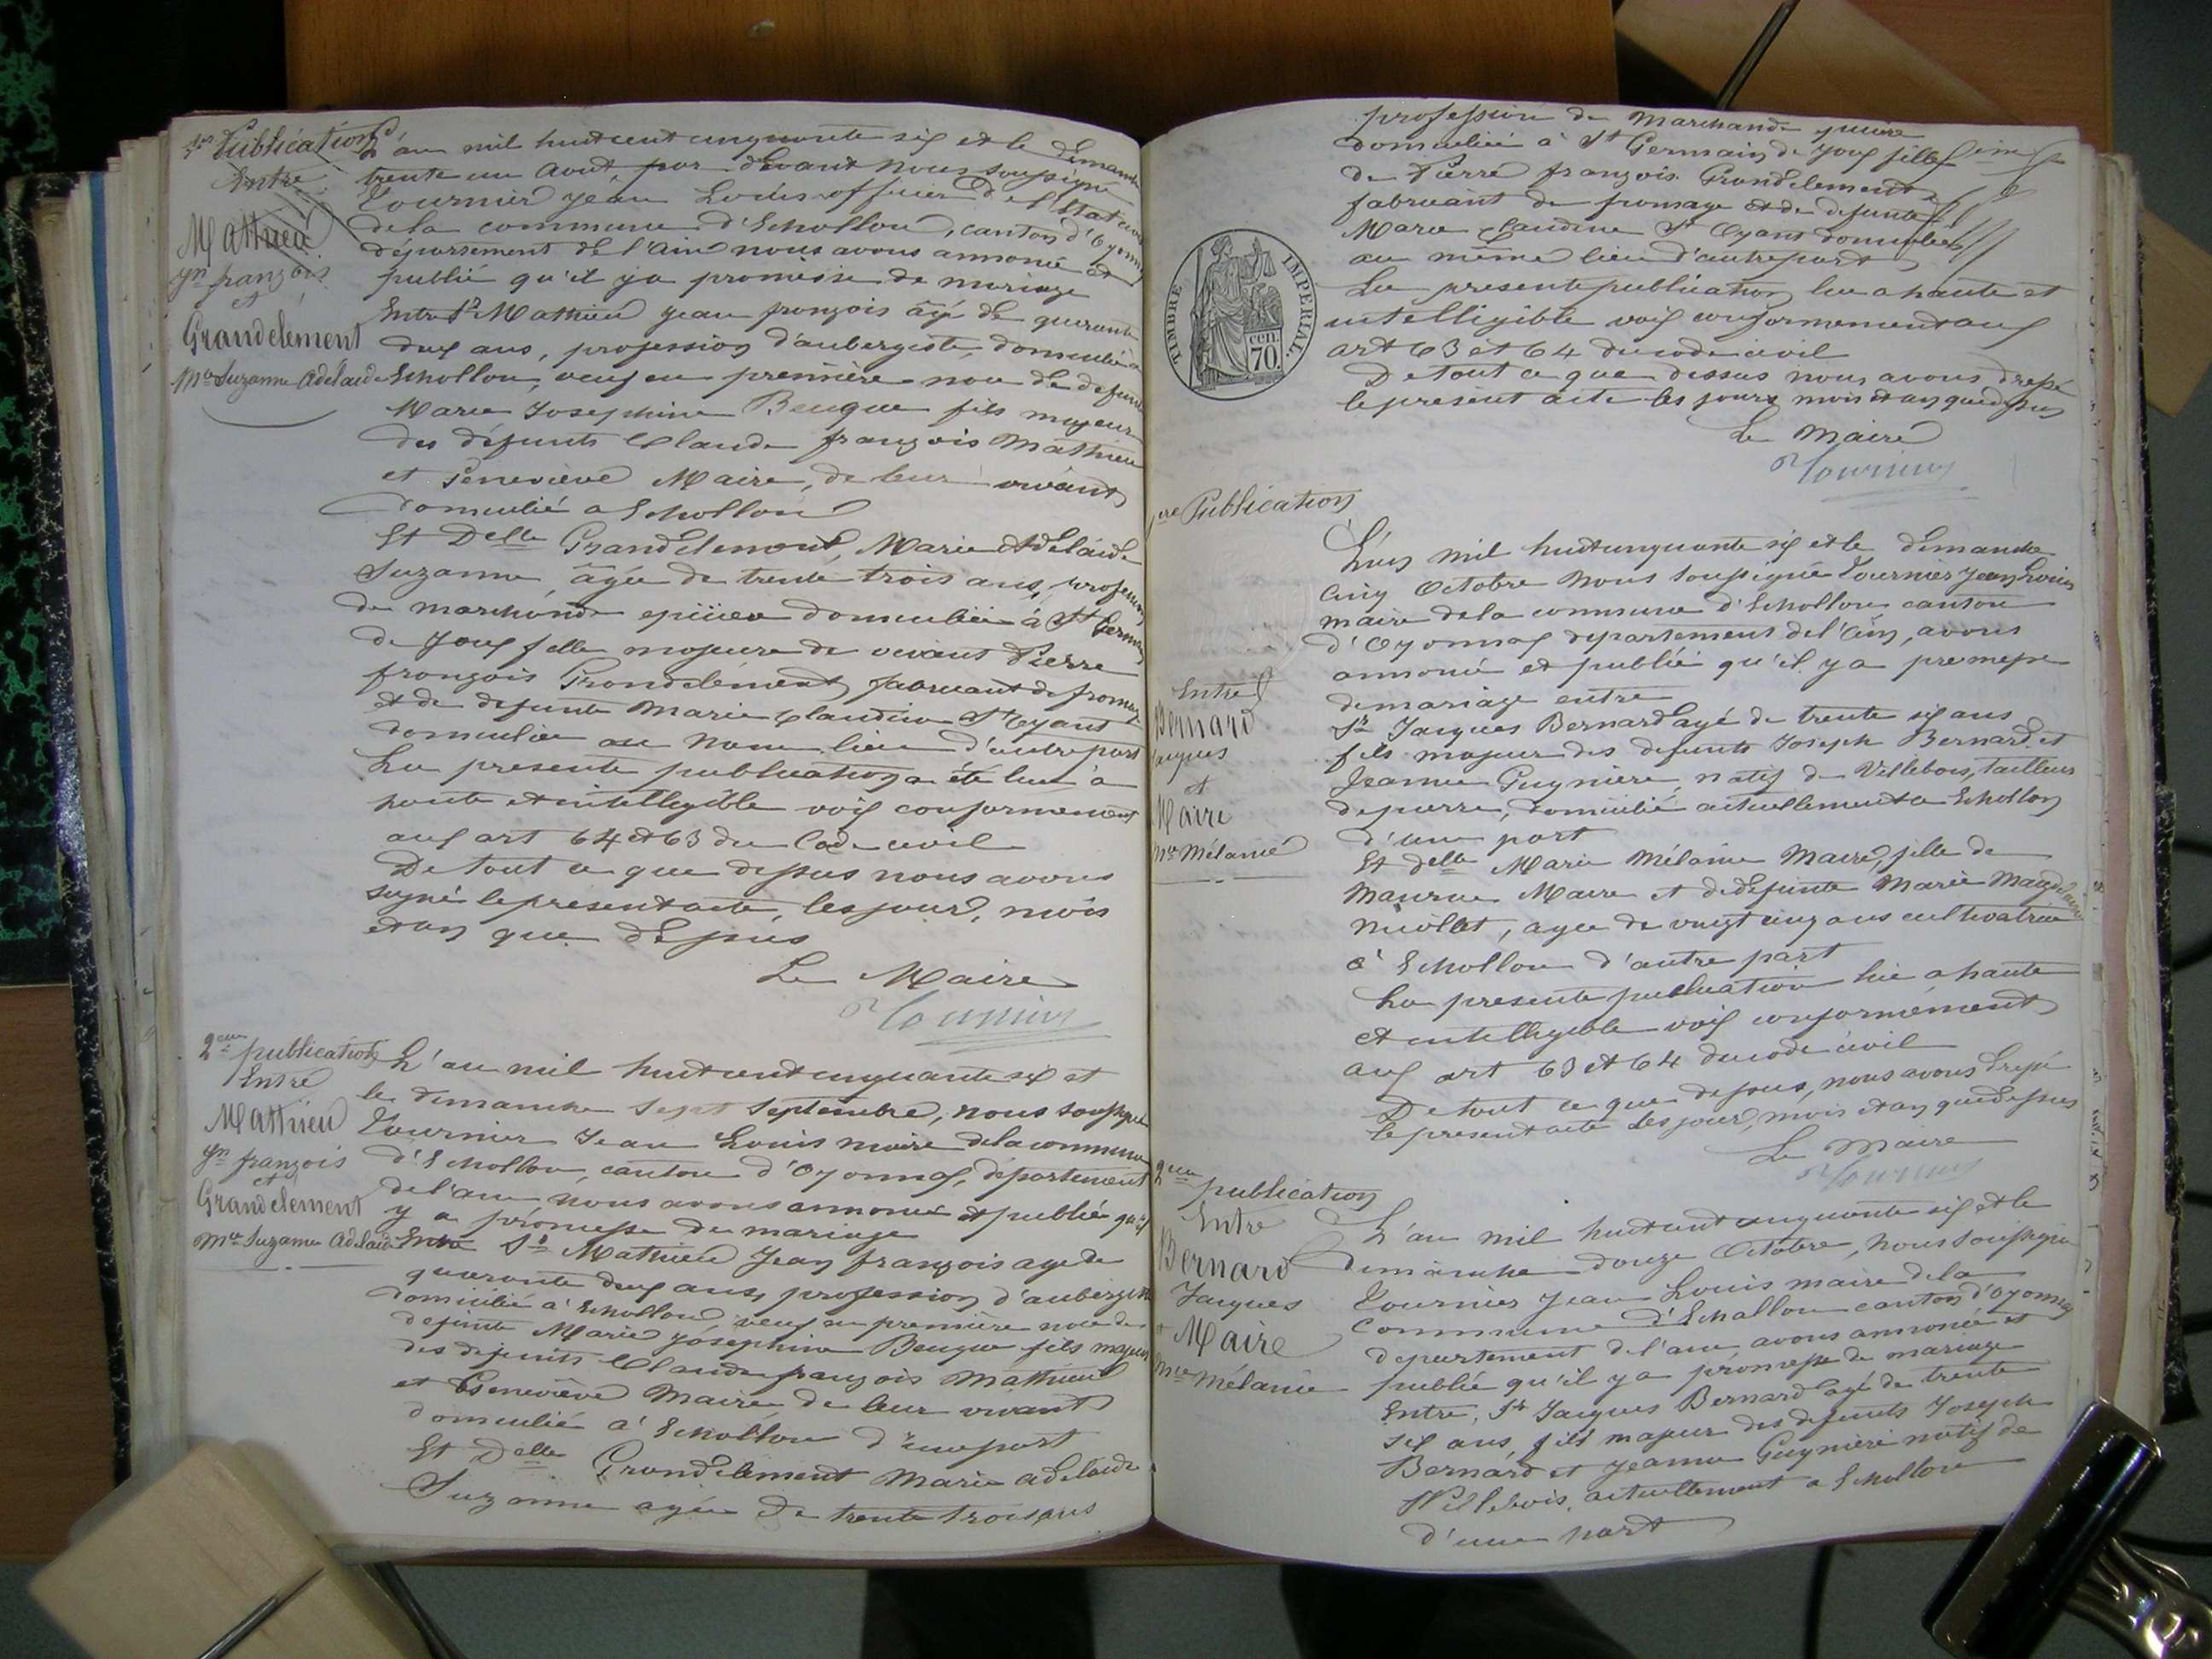 1ère Publication
Entre
Mathieu
Jn françois
et
Grandclement
Mie Suzanne Adélaïde
L'an mil huit cent cinquante six et le dimanche
trente un Août, par devant nous soussigné
Tournier Jean Louis officier de l'Etat civil
de la commune d'Echallon, canton d'Oyonnax
département de l'Ain nous avons annoncé et
publié qu'il y a promesse de mariage
Entre Sr Mathieu Jean françois âgé de quarante
deux ans, profession d'aubergiste, domicilié à
Echallon, veuf en première noce de defunte
Marie Josephine Beuque fils majeur
des défunts Claude françois Mathieu
et Geneviève Maire, de leur vivant
domicilié a Echallon
Et Delle Grandclement, Marie Adelaïde
Suzanne, âgée de trente trois ans, profession
de marchande epiciere domiciliée à St Germain
de Joux fille majeure de vivant Pierre
françois Grandclément, fabricant de fromage
et de defunte Marie Claudine St Oyant
domiciliée au même lieu d'autre part
La presente publication a été lue à
haute et intelligible voix conformement
aux art 64 et 63 du Code civil
De tout ce que dessus nous avons
signé le présent acte, les jour, mois
et an que dessus
Le Maire
Tournier
2eme publication
Entre
Mathieu
Jn françois
et
Grandclement
Mie Suzanne Adelaide
L'an mil huit cent cinquante six et
le dimanche sept Septembre, nous soussigné
Tournier Jean Louis maire de la commune
d'Echallon, canton d'Oyonnax, département
de l'ain nous avons annoncé et publié qu'il
y a promesse de mariage
Entre Sr Mathieu Jean françois age de
quarante deux ans, profession d'aubergiste
domicilié à Echallon, veuf en première noce de
defunte Marie Josephine Beuque fils majeur
des defunts Claude françois Mathieu
et Geneviève Maire de leur vivant
domicilié à Echallon d'une part
Et Delle Grandclement Marie adelaide
Suzanne agée de trente trois ans
profession de Marchande epiciere
domiciliée à St Germain de Joux fille
de Pierre françois Grandclement
fabricant de fromage et de defunte
Marie Claudine St Oyant domiciliée
au même lieu d'autre part
La presente publication lue a haute et
intelligible voix conformement aux
art 63 et 64 du code civil
De tout ce que dessus nous avons dressé
le présent acte les jours mois et an que dessus
Le Maire
Tournier
TIMBRE IMPERIAL.
70 cen.
1ere Publication
Entre
Bernard
Jacques
et
Maire
Mie Mélanie
L'an mil huit cinquante six et le dimanche
cinq Octobre nous soussigné Tournier Jean Louis
maire de la commune d'Echallon canton
d'Oyonnax departement de l'Ain, avons
annoncé et publié qu'il y a promesse
de mariage entre
Sr Jacques Bernard agé de trente six ans
fils majeur des defunts Joseph Bernard et
Jeanne Guynière, natif de Villebois, tailleur
de pierre, domicilié actuellement a Echallon
d'une part
Et Delle Marie Mélanie Maire, fille de
Maurice Maire et de defunte Marie Magdelaine
Niollet, agee de vingt cinq ans cultivatrice
à Echallon d'autre part
La presente publication lue a haute
et intelligible voix conformément
aux art 63 et 64 du code civil
De tout ce que dessus, nous avons dressé
le present acte les jour, mois et an que dessus
Le Maire
Tournier
2eme publication
Entre
Bernard
Jacques
et
Maire
Mie Mélanie
L'an mil huit cent cinquante six et le
dimanche douze Octobre, nous soussigné
Tournier Jean Louis maire de la
Commune d'Echallon canton d'Oyonnax
departement de l'ain avons annoncé et
publié qu'il y a promesse de mariage
Entre, Sr Jacques Bernard agé de trente
six ans, fils majeur des defunts Joseph
Bernard et Jeanne Guynière natif de
Villebois, actuellement a Echallon
d'une part